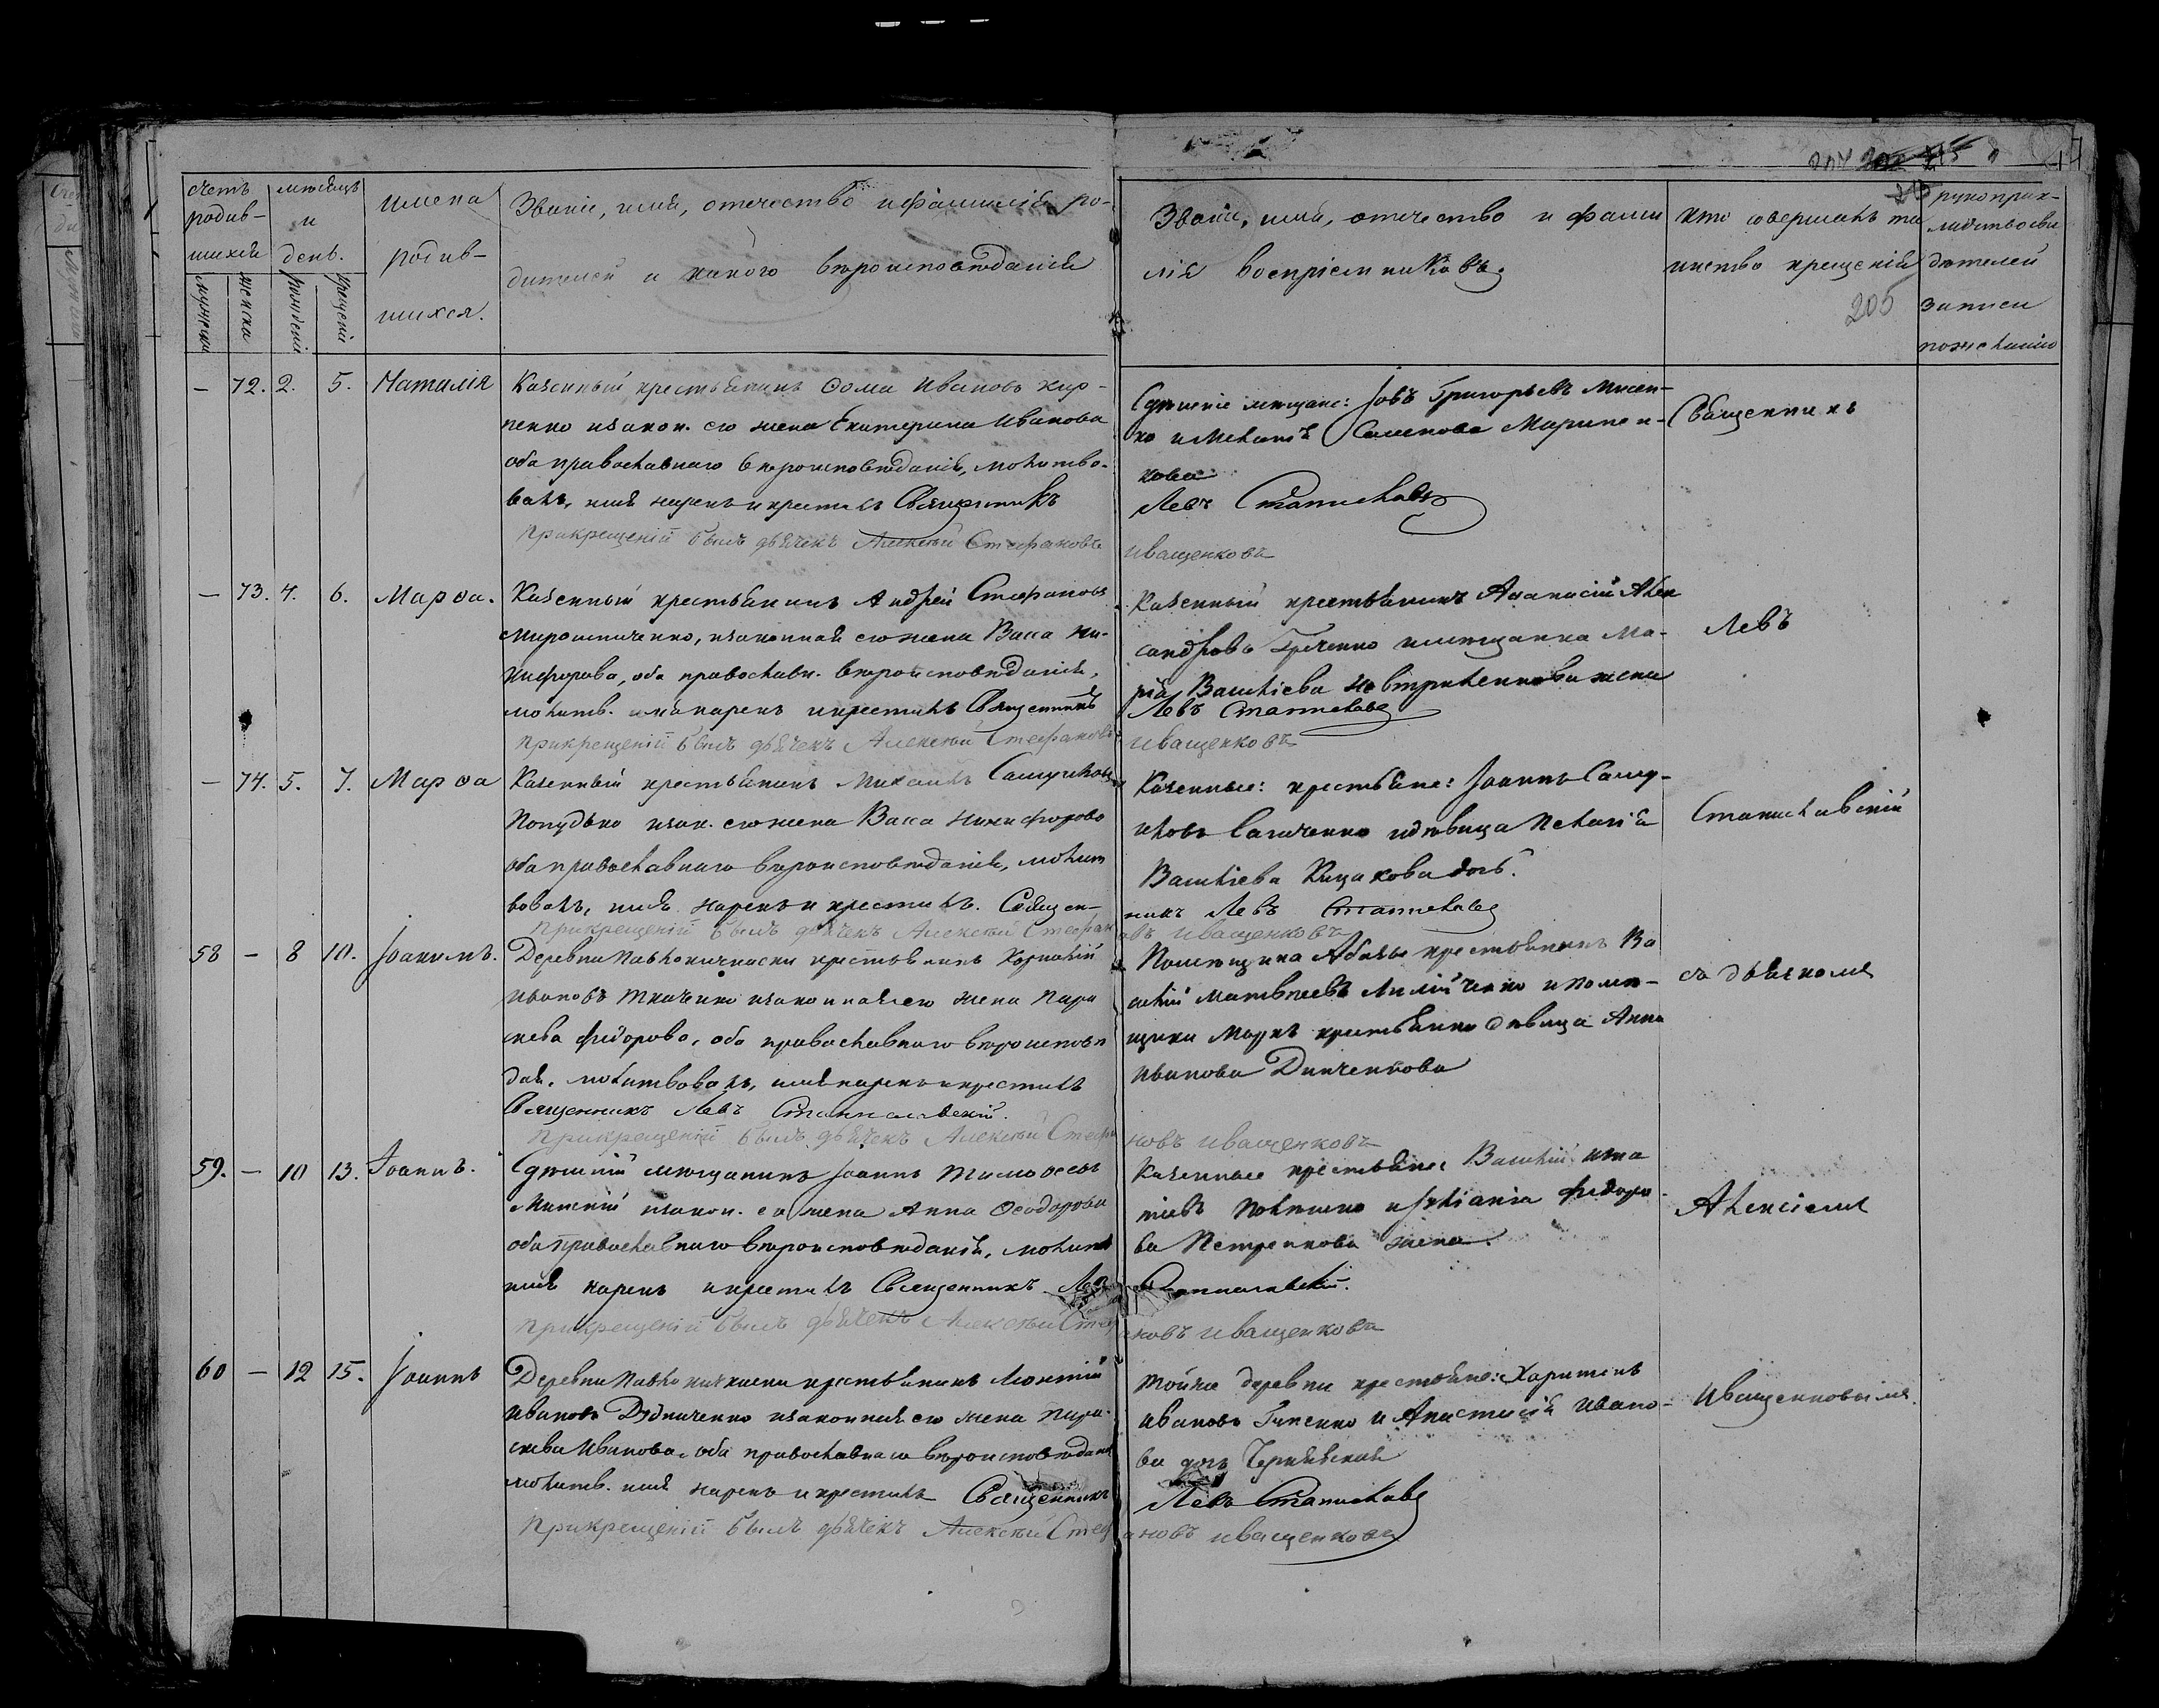 счетъ родив-шихся
мѣсяцъ и день.
имена родив-шихся.
Званіе, имя, отечество и фамилія ро-
дителей и какого вѣроисповѣданія
Званіе, имя, отечество и фами
лія воспріемниковъ.
кто совершалъ та
инство крещенія
205
рукоприк-
ладство сви
дѣтелей
записи
по желанію
мужеска
женска
рожденія
крещенія
— 72. 2. 5. Наталія
Казенный крестьянинъ Ѳома Ивановъ Кир-
пенко и закон. его жена Екатерина Иванова
оба православнаго вѣроисповѣданія, молитво-
валъ, имя нарекъ и крестилъ Священникъ
При крещеніи былъ дьячекъ Алексѣй Стефановъ
мѣщане: Іовъ Григорьевъ Мисен-
ко и Меланія Семенова
кова
Левъ Станиславск
Иващенковъ
Священникъ
— 73. 4. 6. Марѳа.
Казенный крестьянинъ Андрей Стефановъ
Мирошниченко, и законная его жена Васса Ни-
кифорова, оба православн. вѣроисповѣданія,
молитв. имя нарекъ и крестилъ Священникъ
При крещеніи былъ дьячекъ Алексѣй Стефановъ
Казенный крестьянинъ Аѳанасій Алек
сандровъ Гученко и мѣщанка Ма-
рія Василіева жена
Левъ Станиславск
Иващенковъ
Левъ
— 74. 5. 7. Марѳа
Казенный крестьянинъ Михаилъ Самуиловъ
Попудько и зак. его жена Васса Никифорова
оба православнаго вѣроисповѣданія, молит
вовалъ, имя нарекъ и крестилъ. Священ-
При крещеніи былъ дьячекъ Алексѣй Стефан
Казенные: крестьяне: Іоаннъ Саму-
иловъ и дѣвица Пелагія
Василіева Кицакова дочь.
никъ Левъ Станиславск
овъ Иващенковъ
Станиславскій
58 — 8 10. Іоакимъ.
Деревни крестьянинъ Корнилій
Ивановъ Ткаченко и законная его жена Пара
скева Федорова, оба православнаго вѣроисповѣ
дая. молитвовалъ, имя нарекъ и крестилъ
Священникъ Левъ Станиславскій.
При крещеніи былъ дьячекъ Алексѣй Стефа
Помѣщика Абазы крестьянинъ Ва
силій Матвѣевъ и помѣ-
щика крестьянка дѣвица Анна
Иванова
новъ Иващенковъ
съ дьячкомъ
59. — 10 13. Іоаннъ.
мѣщанинъ Іоаннъ Тимоѳеевъ
и закон. его жена Анна Ѳеодорова
оба православнаго вѣроисповѣданія, молитв
имя нарекъ и крестилъ Священникъ Левъ
При крещеніи былъ дьячекъ Алексѣй Стеф
Казенные крестьяне: Василій Игна
тіевъ и Іуліанія Федоро-
ва Петренкова жена.
Станиславскій.
ановъ Иващенковъ
Алексіемъ
60 — 12 15. Іоаннъ
Деревни крестьянинъ Леонтій
Ивановъ Дудниченко и законная его жена Пара-
скева Иванова, оба православнаго вѣроисповѣданія
молитв. имя нарекъ и крестилъ Священникъ
При крещеніи былъ дьячекъ Алексѣй Стеф
Той же деревни крестьяне: Харитонъ
Ивановъ и Анастасія Ивано-
ва дочь Чернявская
Левъ Станиславск
ановъ Иващенковъ
Иващенковымъ.